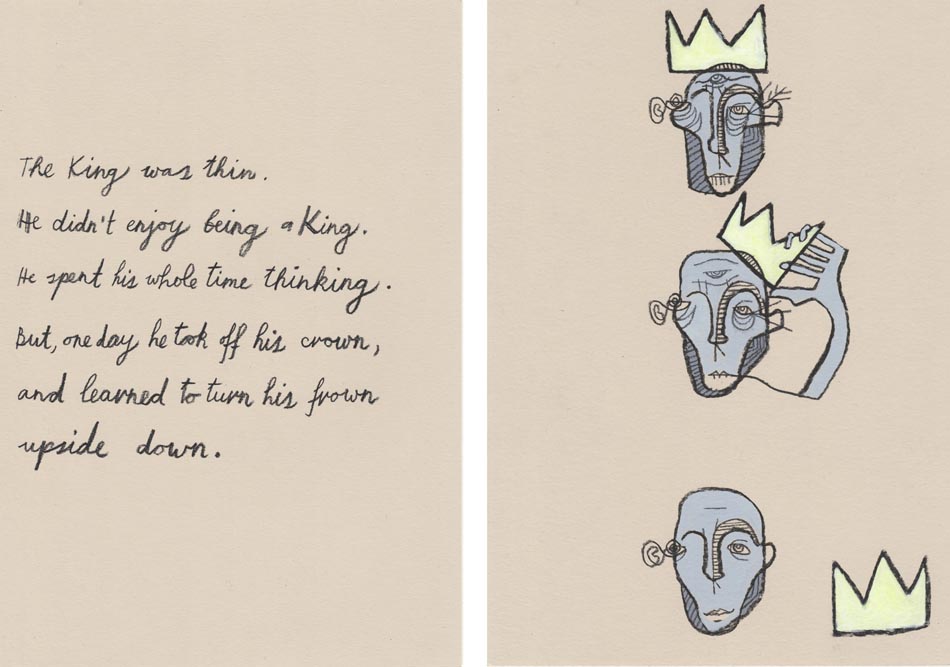 The King was thin.
He didn't enjoy being a King.
He spent his whole time thinking.
But, one day he took off his crown,
and learned to turn his frown
upside down.